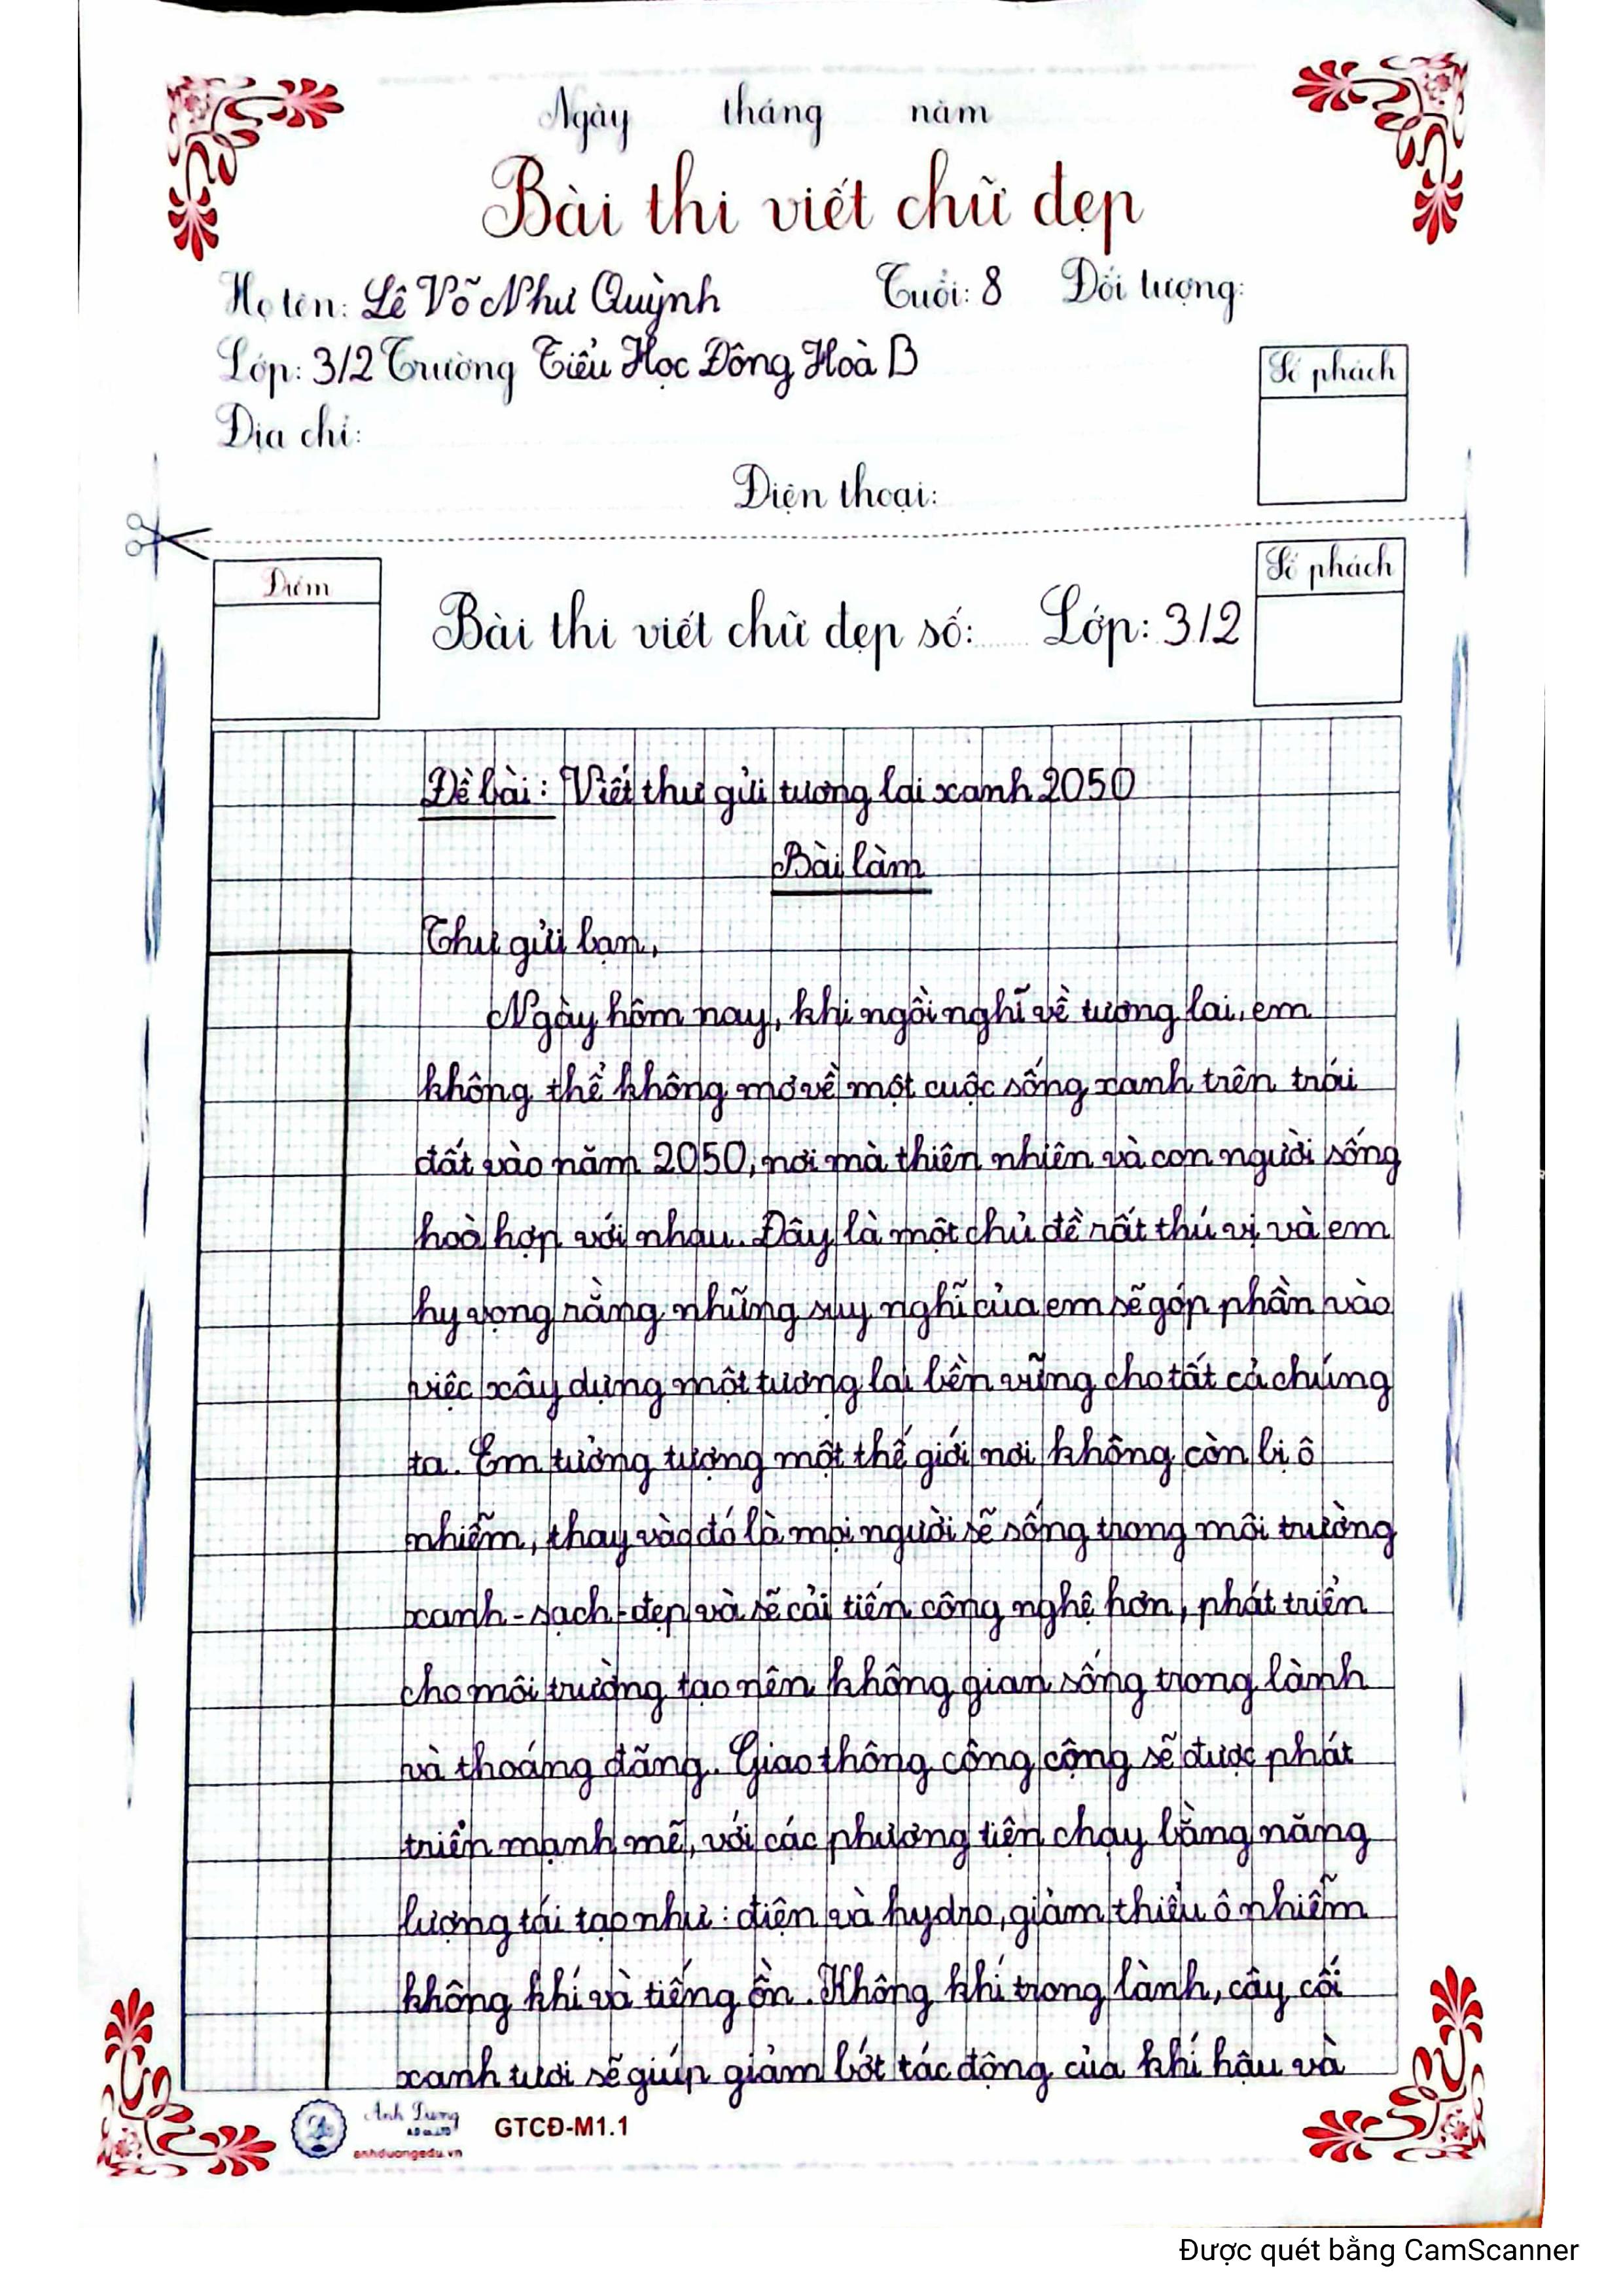 Ngày tháng năm
Bài thi viết chữ đẹp
Họ tên: Lê Võ Như Quỳnh Tuổi: 8 Đối tượng:
Lớp: 3/2 Trường Tiểu Học Đông Hoà B
Số phách
Địa chỉ:
Điện thoại:
Điểm
Số phách
Bài thi viết chữ đẹp số: Lớp: 3/2
Đề bài: Viết thư gửi tương lai xanh 2050
Bài làm
Thư gửi bạn,
Ngày hôm nay, khi ngồi nghĩ về tương lai, em
không thể không mơ về một cuộc sống xanh trên trái
đất vào năm 2050, nơi mà thiên nhiên và con người sống
hoà hợp với nhau. Đây là một chủ đề rất thú vị và em
hy vọng rằng những suy nghĩ của em sẽ góp phần vào
việc xây dựng một tương lai bền vững cho tất cả chúng
ta. Em tưởng tượng một thế giới nơi không còn bị ô
nhiễm, thay vào đó là mọi người sẽ sống trong môi trường
xanh - sạch - đẹp và sẽ cải tiến công nghệ hơn, phát triển
cho môi trường tạo nên không gian sống trong lành
và thoáng đãng. Giao thông công cộng sẽ được phát
triển mạnh mẽ, với các phương tiện chạy bằng năng
lượng tái tạo như: điện và hydro, giảm thiểu ô nhiễm
không khí và tiếng ồn. Không khí trong lành, cây cối
xanh tươi sẽ giúp giảm bớt tác động của khí hậu và
Ánh Dương
anhduongedu.vn
GTCĐ-M1.1
Được quét bằng CamScanner